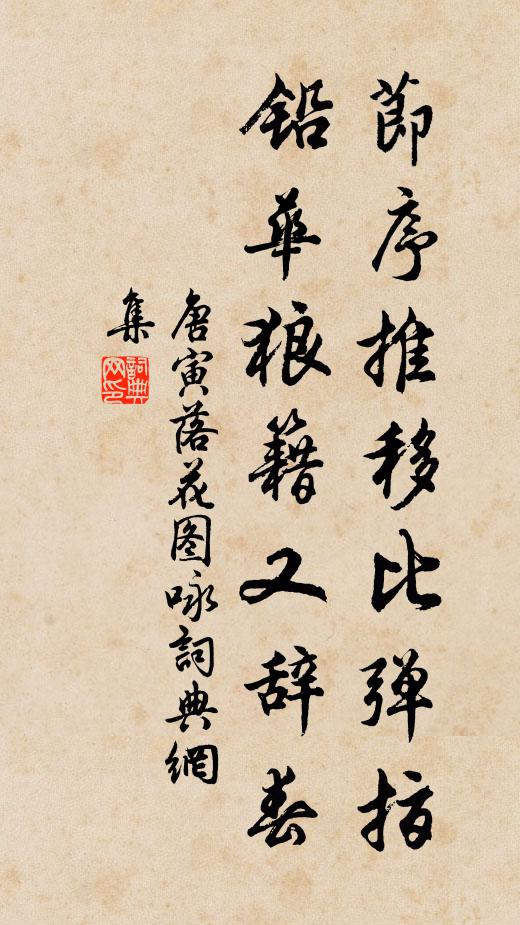 節序推移比弹指
铅華狼籍又辞春
唐寅落花图咏詞典網
集
詞典
网印